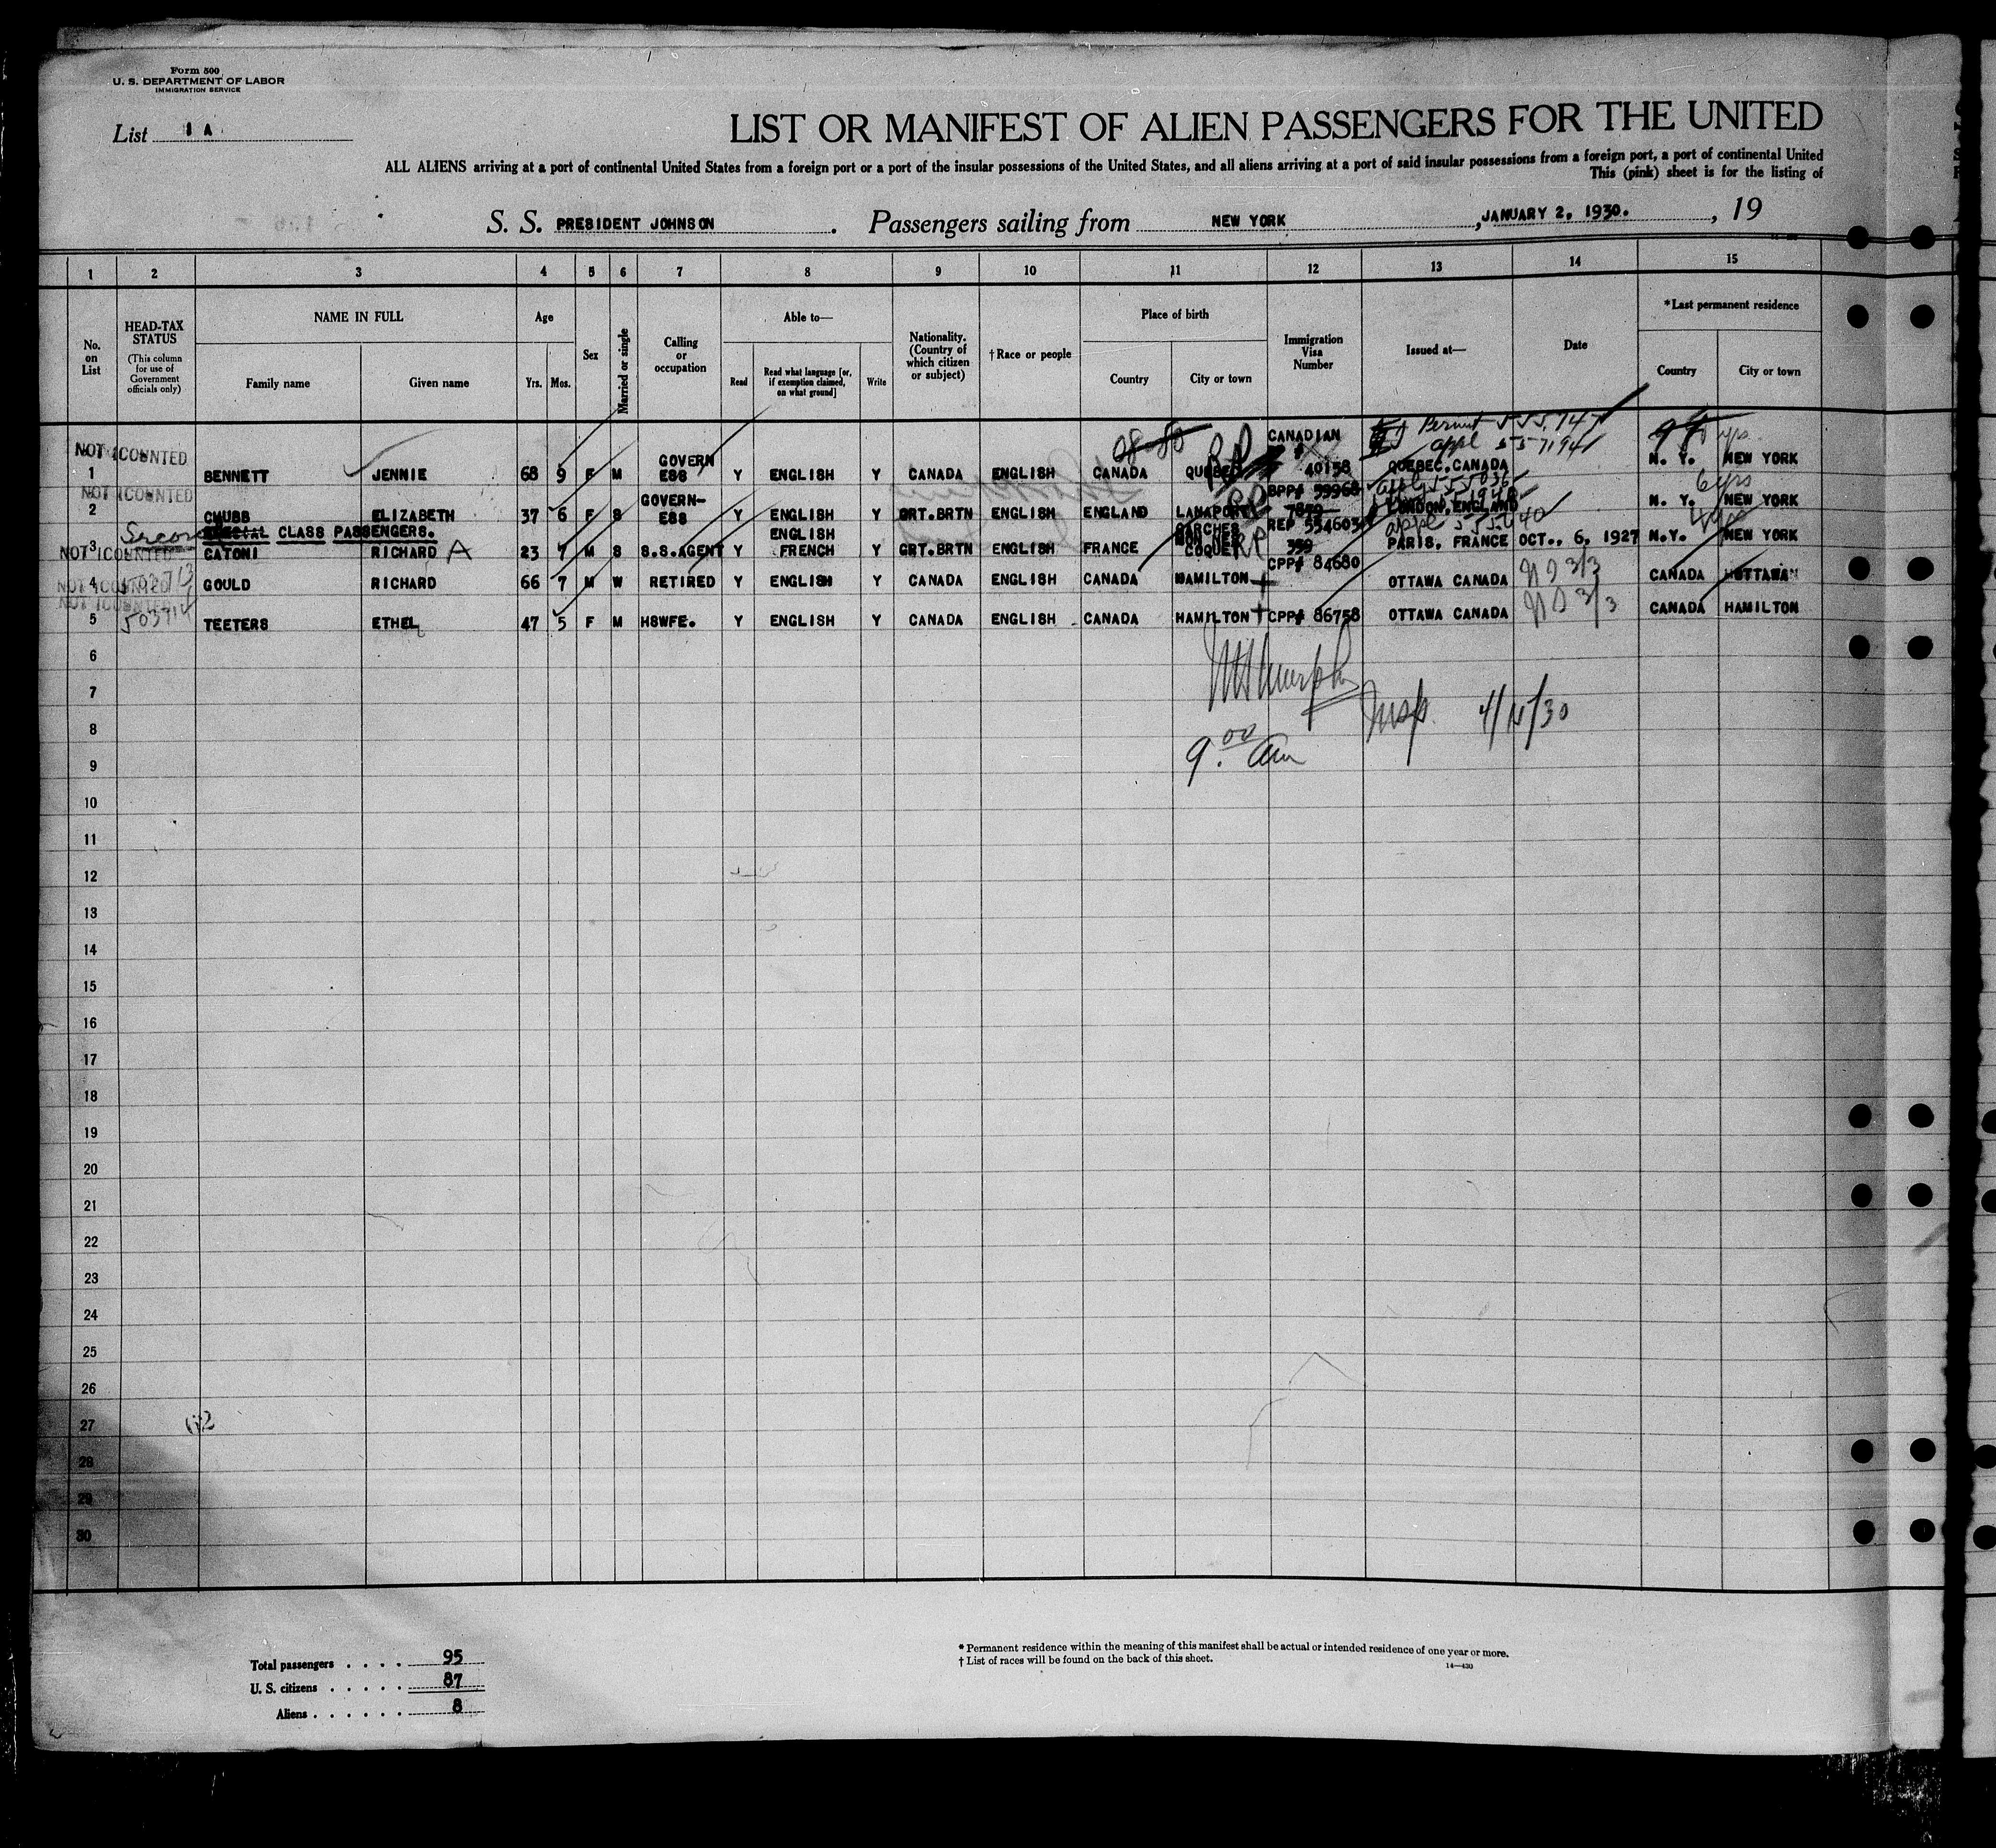 Form 500
U. S. DEPARTMENT OF LABOR
IMMIGRATION SERVICE
List 1 A
LIST OR MANIFEST OF ALIEN PASSENGERS FOR THE UNITED
ALL ALIENS arriving at a port of continental United States from a foreign port or a port of the insular possessions of the United States, and all aliens arriving at a port of said insular possessions from a foreign port, a port of continental United
This (pink) sheet is for the listing of
S. S. PRESIDENT JOHNSON. Passengers sailing from NEW YORK, JANUARY 2, 1930., 19
1 2 3 4 5 6 7 8 9 10 11 12 13 14 15
No. on List
HEAD-TAX STATUS
(This column for use of Government officials only)
NAME IN FULL
Family name Given name
Age
Yrs. Mos.
Sex
Married or single
Calling or occupation
Able to—
Read
Read what language [or, if exemption claimed, on what ground]
Write
Nationality. (Country of which citizen or subject)
†Race or people
Place of birth
Country City or town
Immigration Visa Number
Issued at—
Date
*Last permanent residence
Country City or town
Permit 555,747
appl 557,941
NOT COUNTED CANADIAN
1 BENNETT JENNIE 68 9 F M GOVERNESS Y ENGLISH Y CANADA ENGLISH CANADA QUEBEC RP 40158 QUEBEC, CANADA N. Y. NEW YORK
NOT COUNTED BPP# 39968 6 yrs
2 CHUBB ELIZABETH 37 6 F S GOVERN-ESS Y ENGLISH Y GRT.BRTN ENGLISH ENGLAND RP LONDON, ENGLAND N. Y. NEW YORK
Second SPECIAL CLASS PASSENGERS. REP 554603
NOT COUNTED
3 CATONI RICHARD A 23 7 M S S.S.AGENT Y ENGLISH FRENCH Y GRT.BRTN ENGLISH FRANCE RP PARIS, FRANCE OCT., 6, 1927 N.Y. NEW YORK
NOT COUNTED CPP# 84680
4 GOULD RICHARD 66 7 M W RETIRED Y ENGLISH Y CANADA ENGLISH CANADA HAMILTON OTTAWA CANADA CANADA OTTAWA
NOT COUNTED
5 503714 TEETERS ETHEL 47 5 F M HSWFE. Y ENGLISH Y CANADA ENGLISH CANADA HAMILTON CPP# 86758 OTTAWA CANADA CANADA HAMILTON
6
7
Insp.
8
9.00 am
9
10
11
12
13
14
15
16
17
18
19
20
21
22
23
24
25
26
27
28
29
30
Total passengers . . . . 95
U. S. citizens . . . . . 87
Aliens . . . . . . 8
* Permanent residence within the meaning of this manifest shall be actual or intended residence of one year or more.
† List of races will be found on the back of this sheet.
14—430